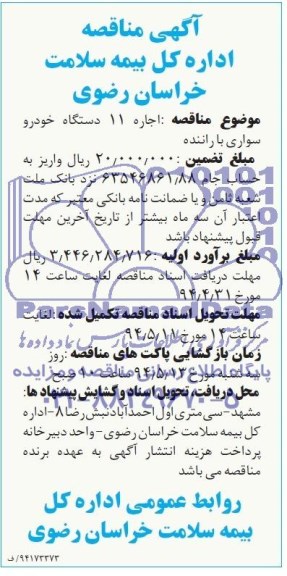 آگهی مناقصه
اداره کل بیمه سلامت
خراسان رضوی
موضوع مناقصه :اجاره ۱۱ دستگاه خودرو
سواری با راننده
مبلغ تضمین :۲۰,۰۰۰,۰۰۰ ریال واریز به
حساب جام ۶۳۵۴۶۸۶۱/۸۸ نزد بانک ملت
شعبه ثامن و یا ضمانت نامه بانکی معتبر که مدت
اعتبار آن سه ماه بیشتر از تاریخ آخرین مهلت
قبول پیشنهاد باشد
مبلغ برآورد اولیه :۳,۴۴۶,۲۸۴,۷۱۶ ریال
مهلت دریافت اسناد مناقصه لغایت ساعت ۱۴
مورخ ۹۴،۴،۳۱
مهلت تحویل اسناد مناقصه تکمیل شده :لغایت
ساعت ۱۴ مورخ ۹۴،۵،۱۱
زمان بازگشایی پاکت های مناقصه :روز
مورخ ۹۴،۵،۱۳ ساعت ۱۰ صبح
محل دریافت، تحویل اسناد و گشایش پیشنهاد ها:
مشهد-سی متری اول احمدآباد نبش رضا ۸-اداره
کل بیمه سلامت خراسان رضوی-واحد دبیرخانه
پرداخت هزینه انتشار آگهی به عهده برنده
مناقصه می باشد
روابط عمومی اداره کل
بیمه سلامت خراسان رضوی
۹۴۱۷۳۳۷۳/ف